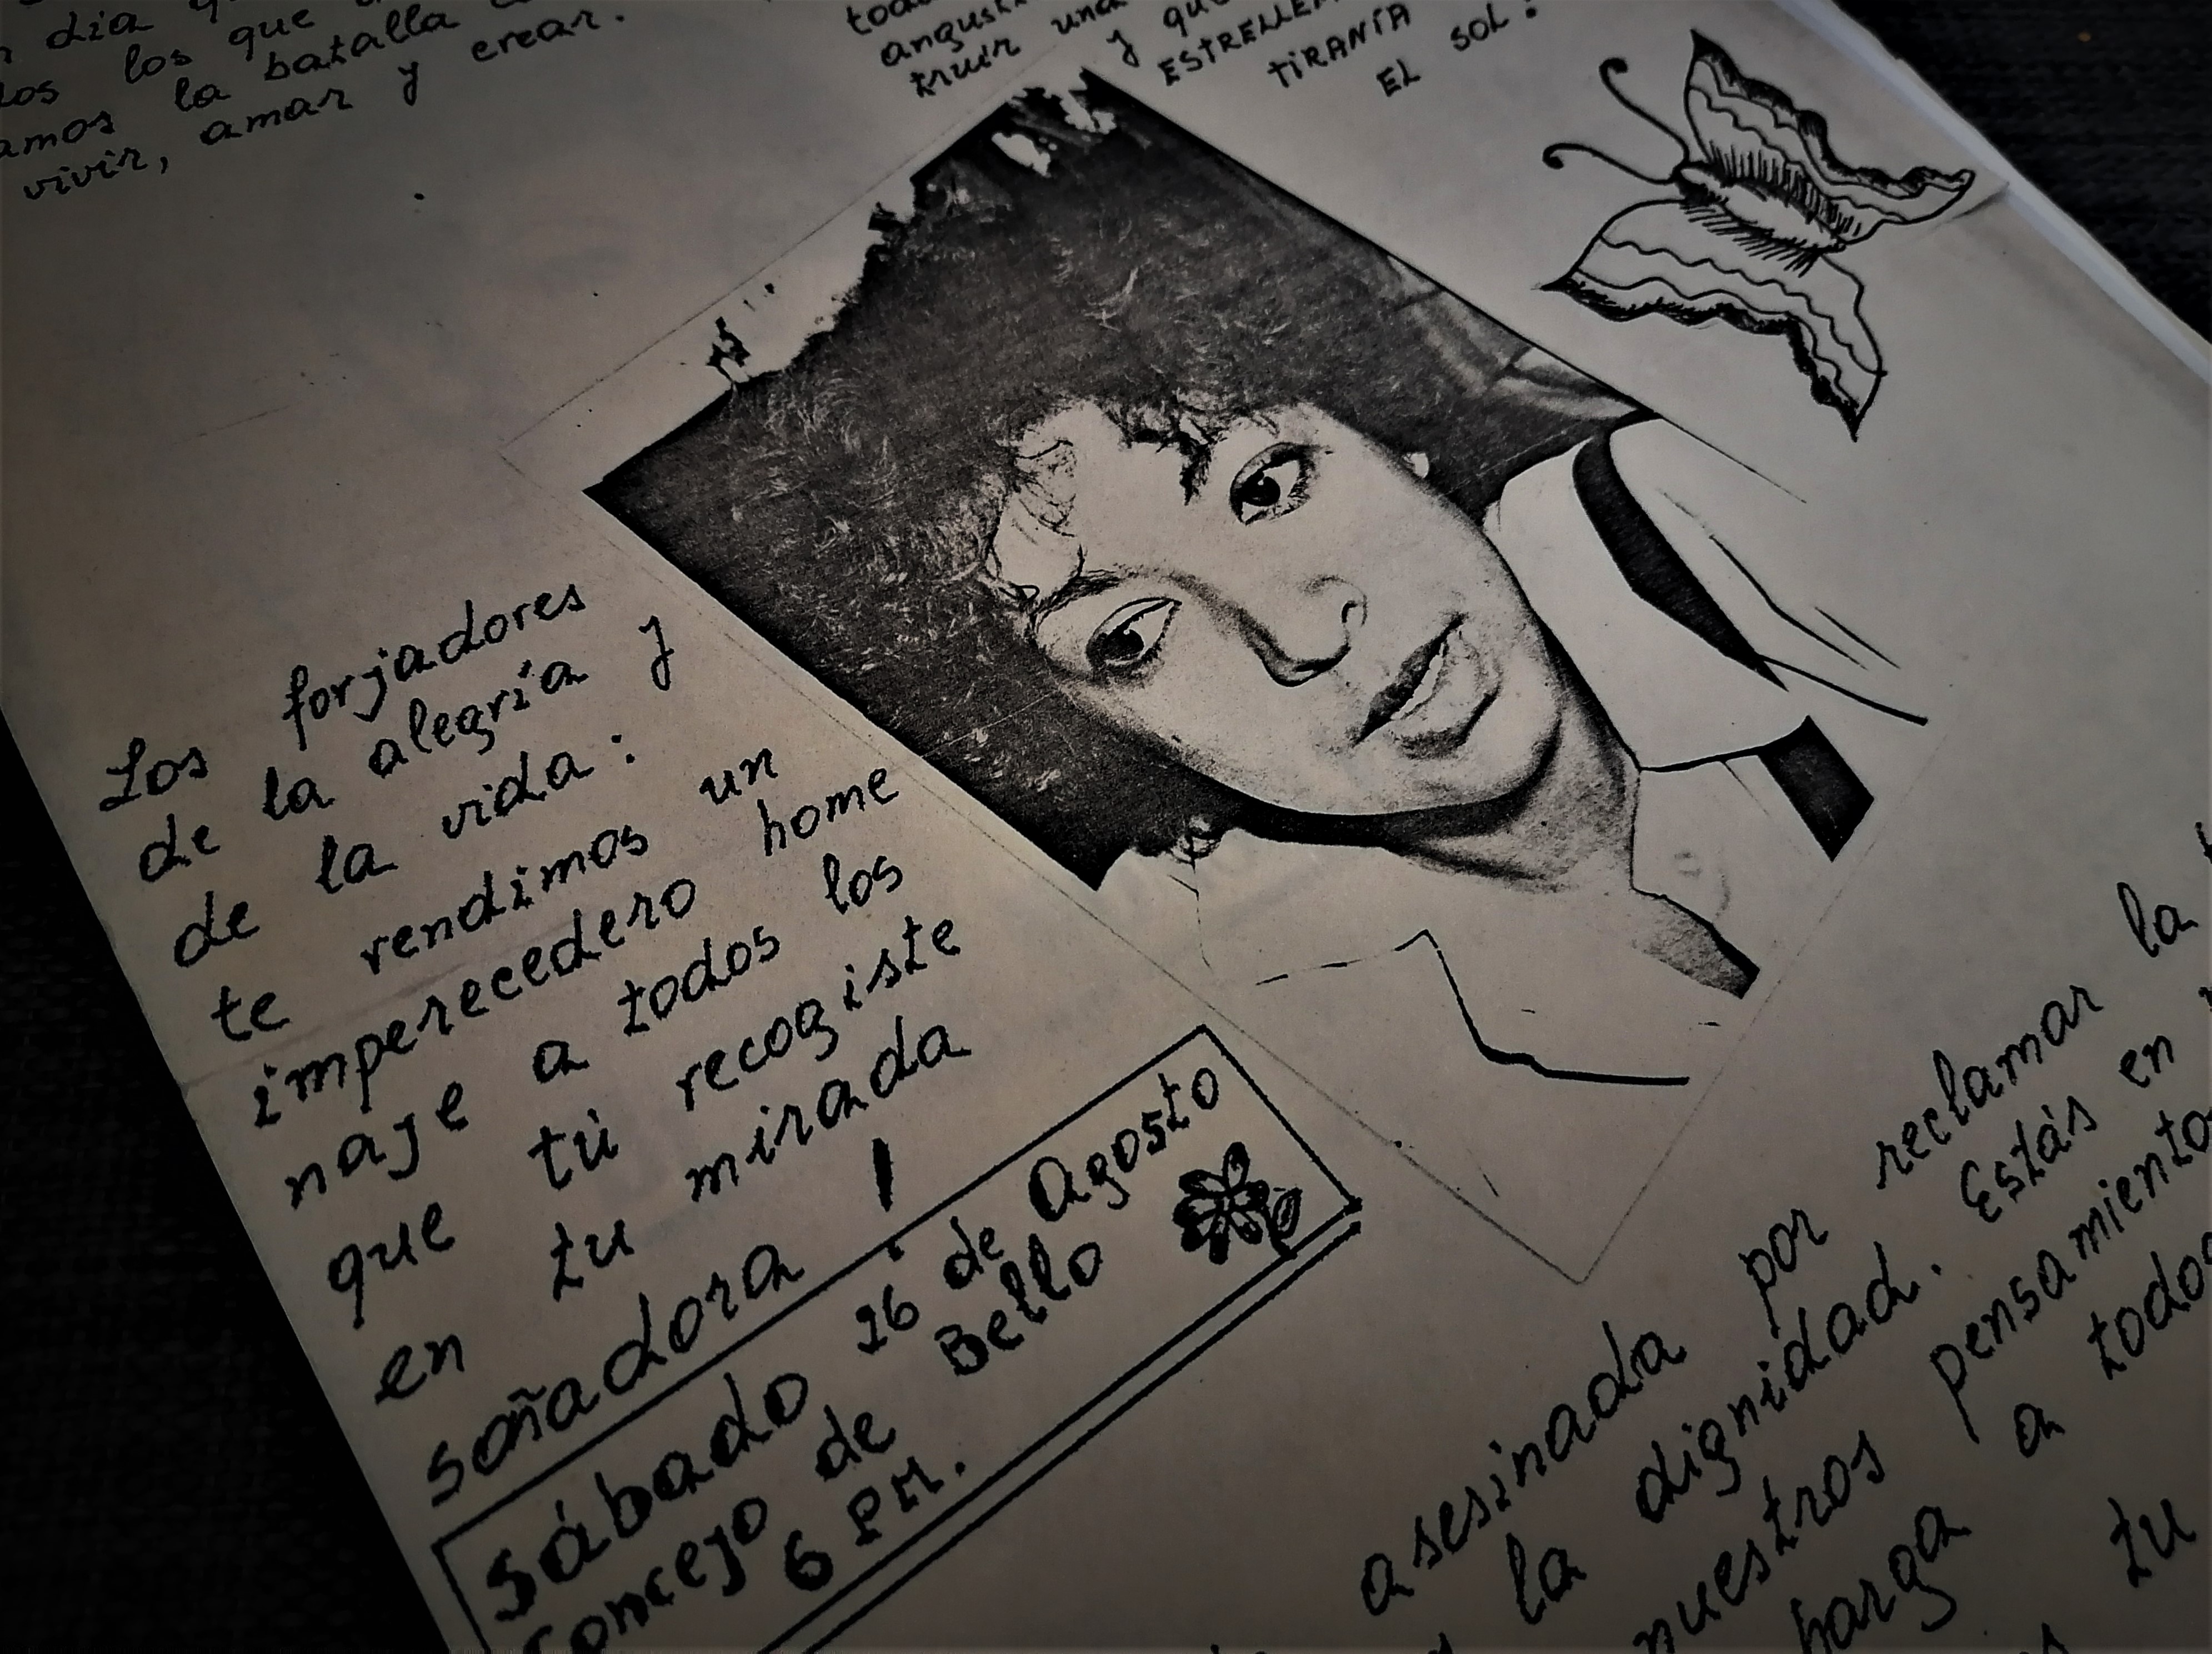 día
los que
la batalla
vivir, amar y crear.
y
ESTRELLE
TIRANÍA
EL SOL:
Los forjadores
de la alegría y
de la vida:
te rendimos un
imperecedero home
naje a todos los
que tú recogiste
en tu mirada
soñadora!
Sábado 16 de Agosto
Concejo de Bello
6 PM.
asesinada por reclamar la
la dignidad. Estás en
nuestros pensamiento
a todos
tu